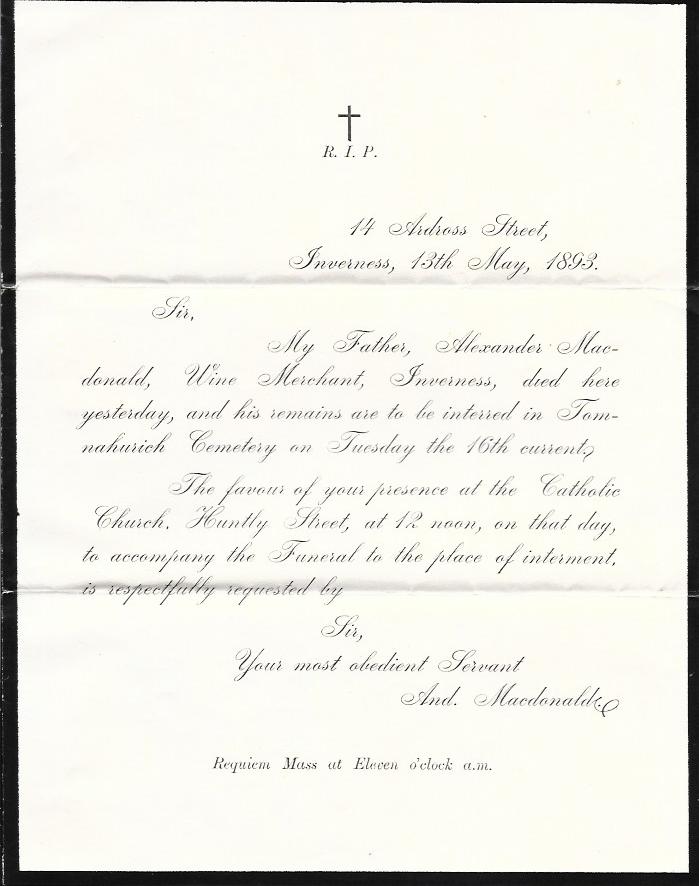 R. I. P.
14 Ardross Street,
Inverness, 13th May, 1893.
Sir,
My Father, Alexander Mac-
donald, Wine Merchant, Inverness, died here
yesterday, and his remains are to be interred in Tom-
nahurich Cemetery on Tuesday the 16th current.
The favour of your presence at the Catholic
Church, Huntly Street, at 12 noon, on that day,
to accompany the Funeral to the place of interment,
is respectfully requested by
Sir,
Your most obedient Servant
And. Macdonald.
Requiem Mass at Eleven o'clock a.m.